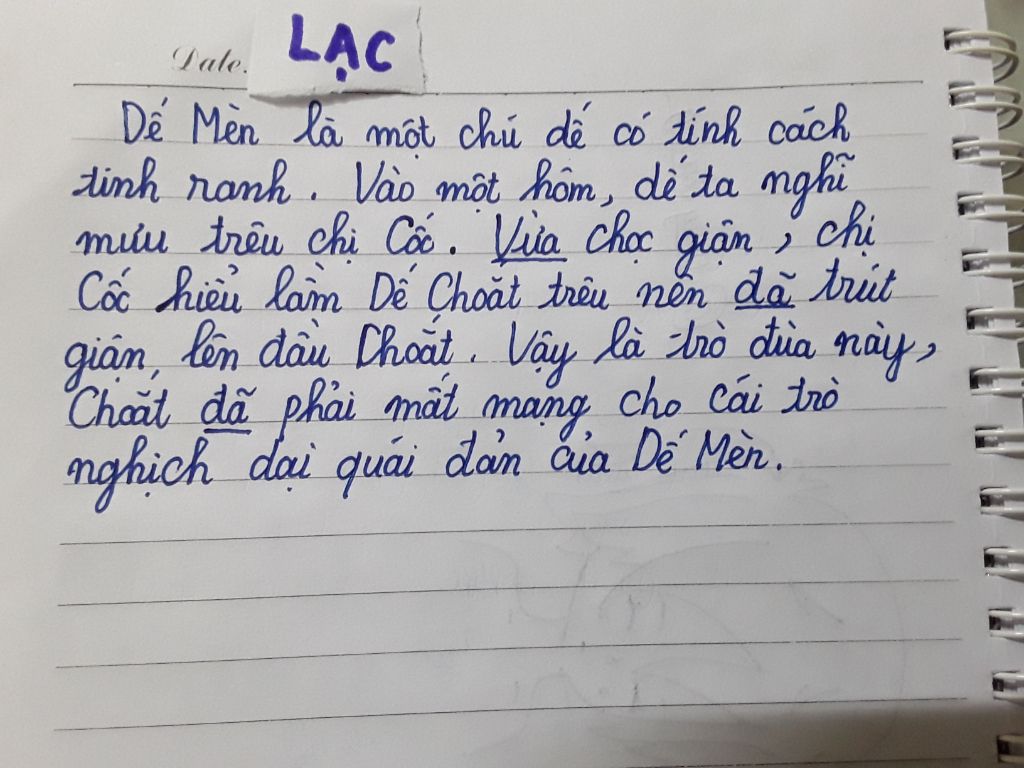 Date.
LẠC
Dế Mèn là một chú dế có tính cách
tinh ranh. Vào một hôm, dế ta nghĩ
mưu trêu chị Cốc. Vừa chọc giận, chị
Cốc hiểu lầm Dế Choắt trêu nên đã trút
giận, lên đầu Choắt. Vậy là trò đùa này,
Choắt đã phải mất mạng cho cái trò
nghịch dại quái đản của Dế Mèn.